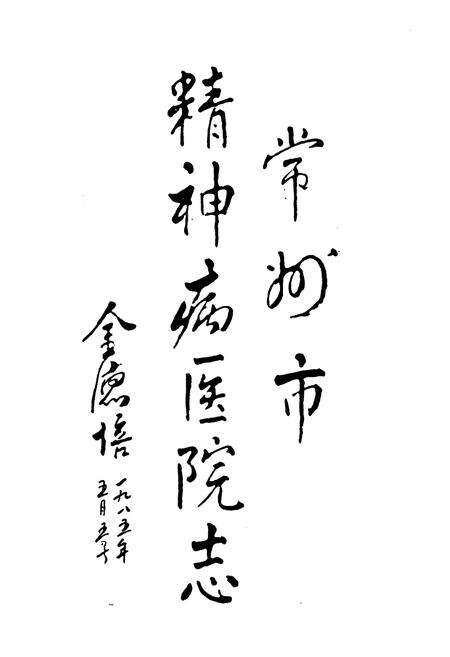 常州市
精神病医院志
金德培
一九八五年
五月五号